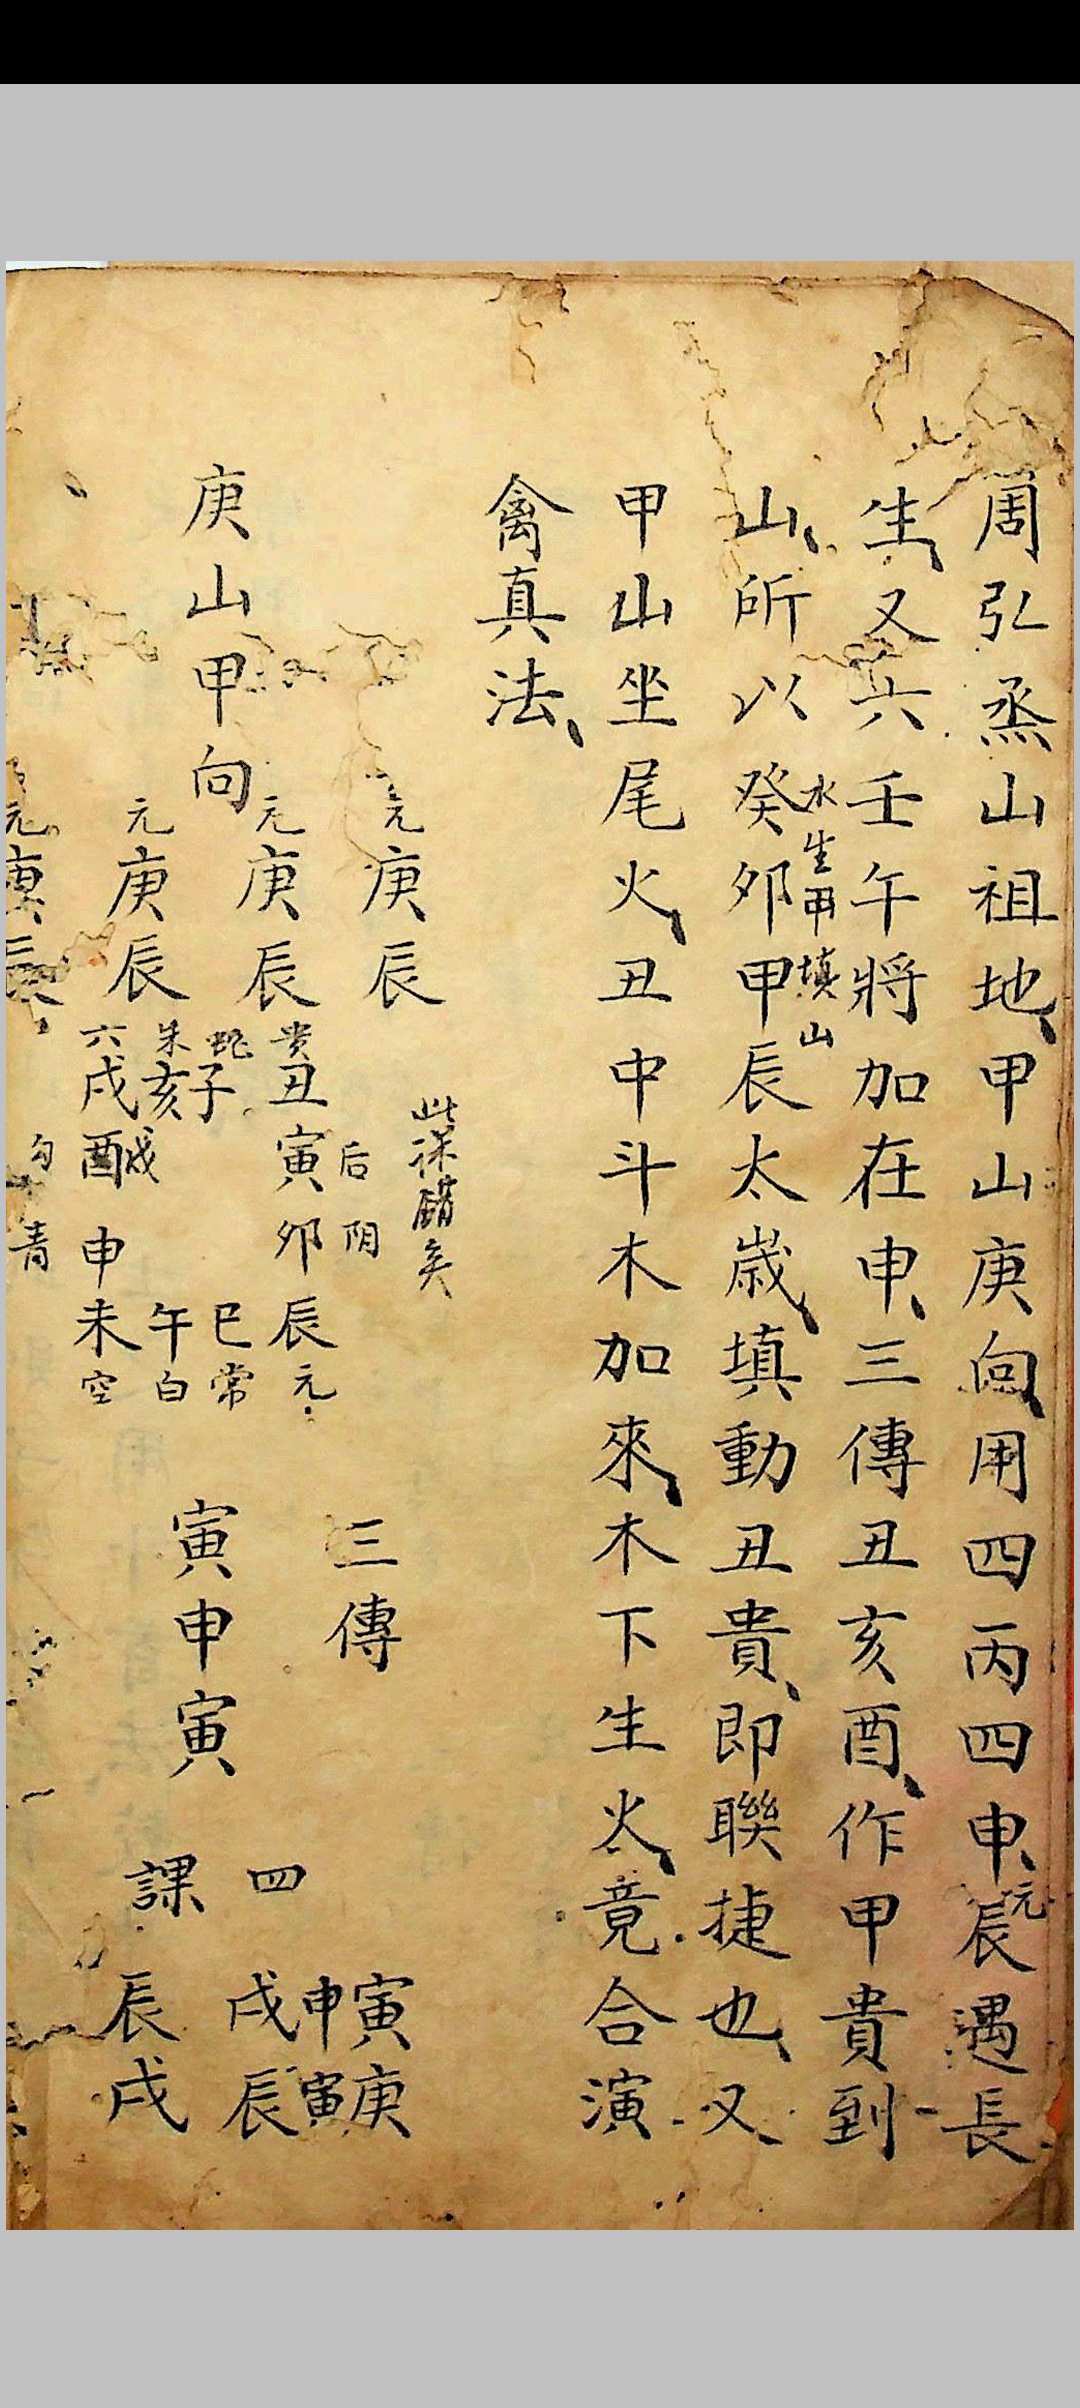 周弘烝山祖地甲山庚向用四丙四申元辰遇長
生又六壬午將加在申三傳丑亥酉作甲貴到
山所以癸卯甲辰太歲填動丑貴即聯捷也又
水生甲填山
甲山坐尾火丑中斗木加來木下生火竟合演
禽真法
此課錯矣
元庚辰
元庚辰
庚山甲向
元庚辰
元庚辰
貴 蛇 朱 六
丑 子 亥 戌
寅 后
戌 酉 勾
卯 阴
申 青
辰 巳 午 未
元 常 白 空
三傳
寅申寅
四課
寅庚
申寅
戌辰
辰戌